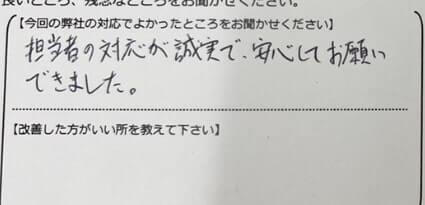 良いところ、残念なところをお聞かせください。
【今回の弊社の対応でよかったところをお聞かせください】
担当者の対応が誠実で、安心してお願い
できました。
【改善した方がいい所を教えて下さい】